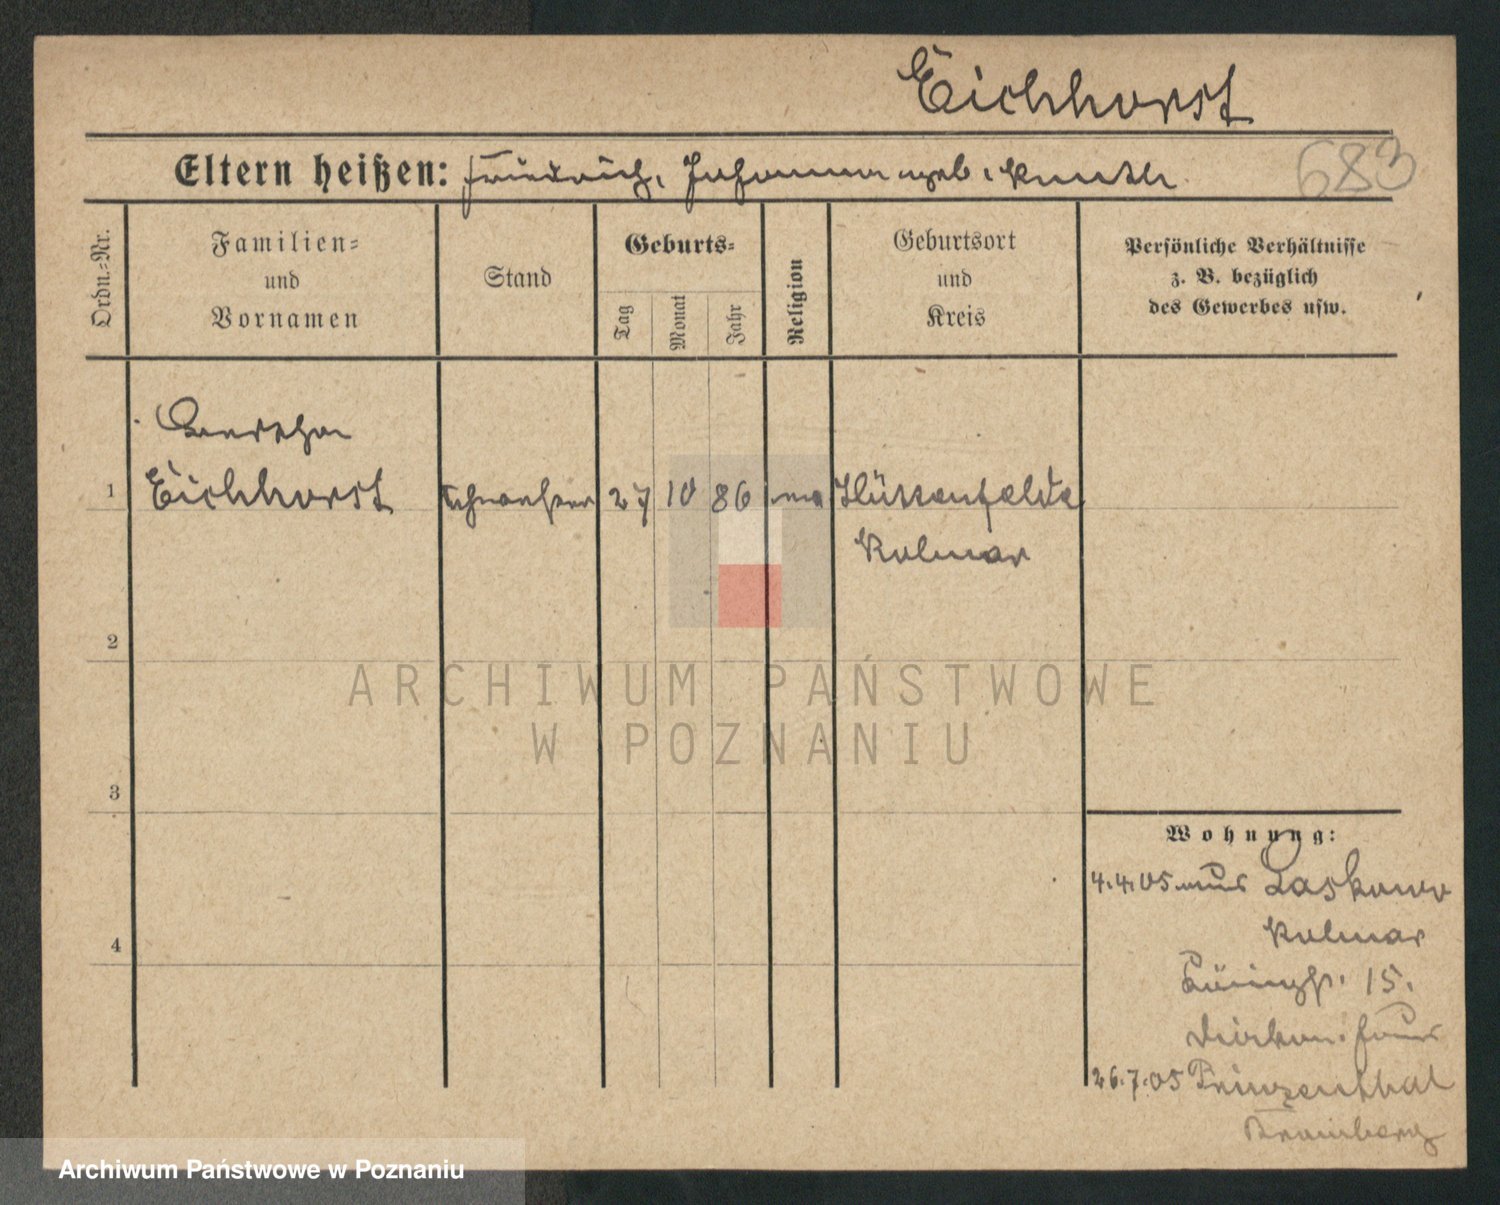 Eichhorst
Eltern heißen: Friedrich, Johanna geb. Kunth
683
Ordn.=Nr.
Familien=
und
Vornamen
Stand
Geburts=
Tag
Monat
Jahr
Religion
Geburtsort
und
Kreis
Persönliche Verhältnisse
z. B. bezüglich
des Gewerbes usw.
Bertha
1 Eichhorst Schwester 27 10 86 Hüttenfelde
Kolmar
2
3
4
Wohnung:
4.4.05 aus Laskowo
Kolmar
15.
Diakon. Haus
26.7.05 Prinzenthal
Bromberg
ARCHIWUM PAŃSTWOWE
W POZNANIU
Archiwum Państwowe w Poznaniu